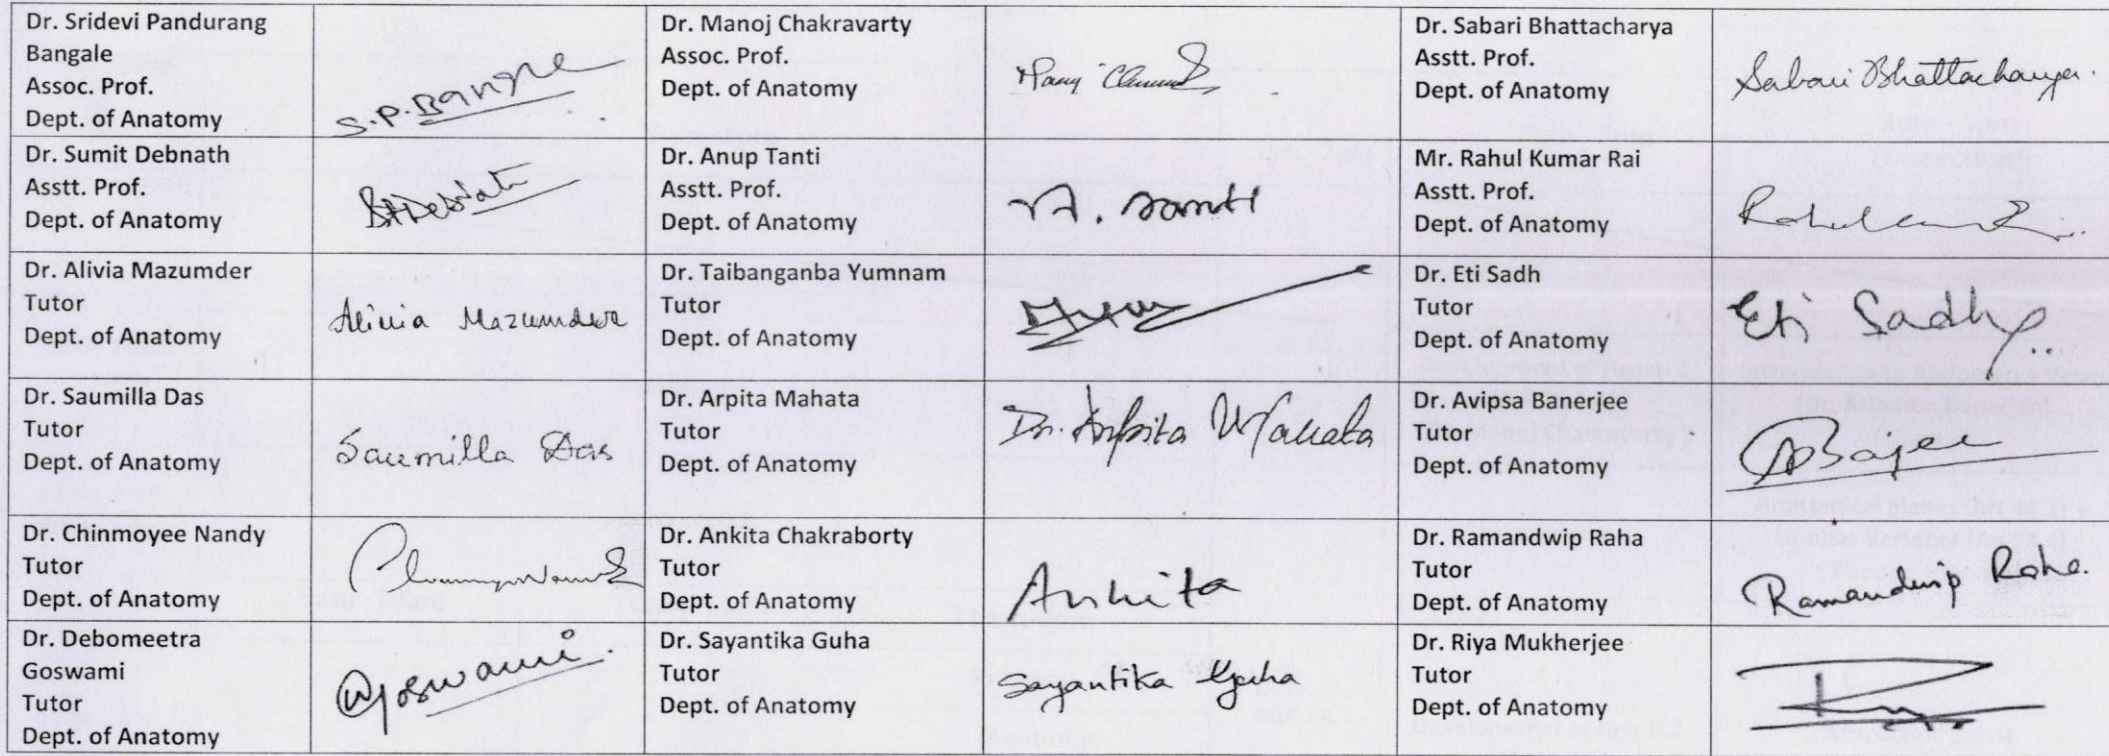 Dr. Sridevi Pandurang
Bangale
Assoc. Prof.
Dept. of Anatomy
S.P. Bangale
Dr. Manoj Chakravarty
Assoc. Prof.
Dept. of Anatomy
Dr. Sabari Bhattacharya
Asstt. Prof.
Dept. of Anatomy
Sabari Bhattacharya.
Dr. Sumit Debnath
Asstt. Prof.
Dept. of Anatomy
Dr. Anup Tanti
Asstt. Prof.
Dept. of Anatomy
A. Tanti
Mr. Rahul Kumar Rai
Asstt. Prof.
Dept. of Anatomy
Dr. Alivia Mazumder
Tutor
Dept. of Anatomy
Alivia Mazumder
Dr. Taibanganba Yumnam
Tutor
Dept. of Anatomy
Dr. Eti Sadh
Tutor
Dept. of Anatomy
Eti Sadh
Dr. Saumilla Das
Tutor
Dept. of Anatomy
Saumilla Das
Dr. Arpita Mahata
Tutor
Dept. of Anatomy
Dr. Arpita Mahata
Dr. Avipsa Banerjee
Tutor
Dept. of Anatomy
Dr. Chinmoyee Nandy
Tutor
Dept. of Anatomy
Dr. Ankita Chakraborty
Tutor
Dept. of Anatomy
Ankita
Dr. Ramandwip Raha
Tutor
Dept. of Anatomy
Ramandwip Raha.
Dr. Debomeetra
Goswami
Tutor
Dept. of Anatomy
DGoswami.
Dr. Sayantika Guha
Tutor
Dept. of Anatomy
Sayantika Guha
Dr. Riya Mukherjee
Tutor
Dept. of Anatomy